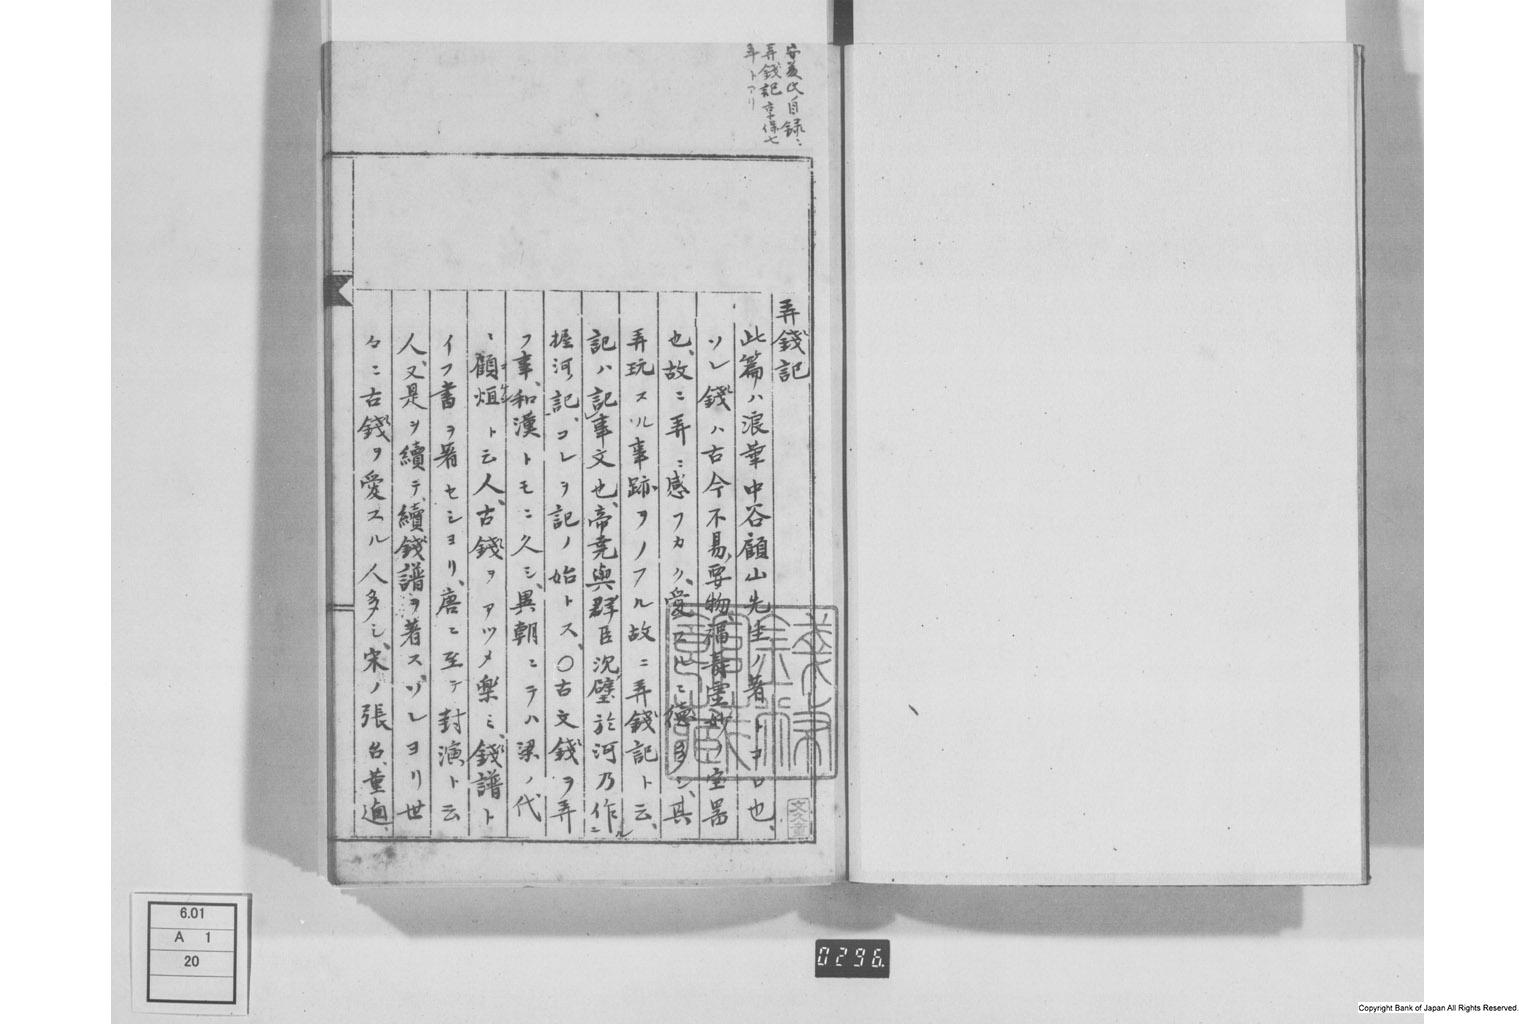 安美氏目録ニ
弄錢記享保七
年トアリ
弄錢記
此篇ハ浪華中谷顧山先生ノ著トヨロ也、
ソレ錢ハ古今不易、要物、福壽霊妙ノ宝器
也、故ニ弄ニ感フカク、愛スルニ德多シ、其
弄玩スル事跡ヲノフル故ニ弄錢記ト云、
記ハ記事文也、帝堯與群臣沉璧於河乃作ル
握河記、コレヲ記ノ始トス、〇古文錢ヲ弄
フ事、和漢トモニ久シ、異朝ニテハ梁ノ代
ニ顧烜ト云人、古錢ヲアツメ楽ミ、錢譜ト
イフ書ヲ著セシヨリ、唐ニ至テ封演ト云
人、又是ヲ續テ、續錢譜ヲ著ス、ソレヨリ世
々ニ古錢ヲ愛スル人多シ、宋ノ張台、董逌、
6.01
A 1
20
0296.
Copyright Bank of Japan All Rights Reserved.